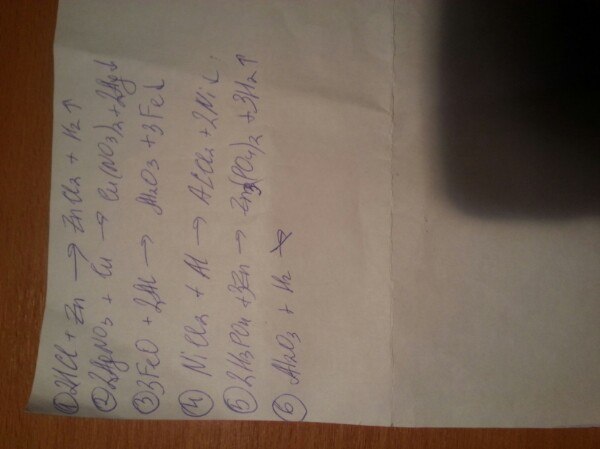 ① 2HCl + Zn → ZnCl2 + H2↑
② 2AgNO3 + Cu → Cu(NO3)2 + 2Ag↓
③ 3FeO + 2Al → Al2O3 + 3Fe↓
④ NiCl2 + Al → AlCl2 + 2Ni↓
⑤ 2H3PO4 + 3Zn → Zn3(PO4)2 + 3H2↑
⑥ Al2O3 + H2 ↛